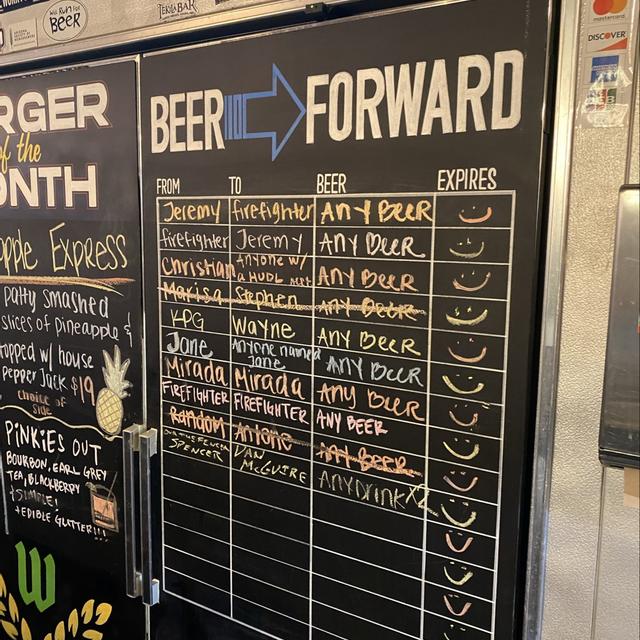 WILL RUN FOR
BEER
BEER FORWARD
FROM TO BEER EXPIRES
Jeremy firefighter ANY BEER
firefighter Jeremy ANY BEER
Christian Anyone w/ a HUDL ANY BEER
Marisa Stephen ANY BEER
KPG Wayne ANY BEER
Jane Anyone named Jane ANY BEER
Mirada Mirada ANY BEER
FIREFIGHTER FIREFIGHTER ANY BEER
Random Anyone ANY BEER
SPENCER VAN McGUIRE ANY DRINK X2
RGER
of the
ONTH
pple Express
patty smashed
slices of pineapple &
topped w/ house
pepper Jack $19
choice of
side
PiNKiES OUT
BOURBON, EARL GREY
TEA, BLACKBERRY
+EDIBLE GLITTER!!!
W
mastercard
DISCOVER